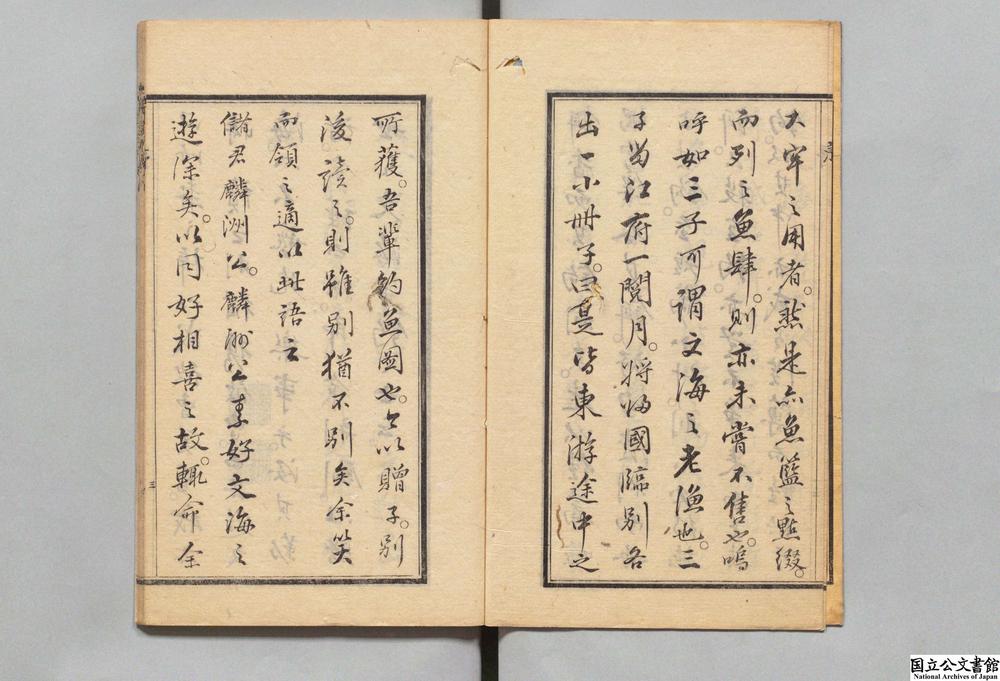 大宰之用者。然是亦魚籃之點綴。
而列之魚肆。則亦未嘗不售也。嗚
呼如三子可謂文海之老漁也。三
子留江府一閱月。將歸國臨別各
出一小冊子。曰是皆東游途中之
所獲。吾輩釣魚圖也。今以贈子。別
後讀之。則雖別猶不別矣余笑
而領之適以此語云
儲君麟洲公。麟洲公素好文海之
遊深矣。以同好相喜之故。輒命余
三
国立公文書館
National Archives of Japan